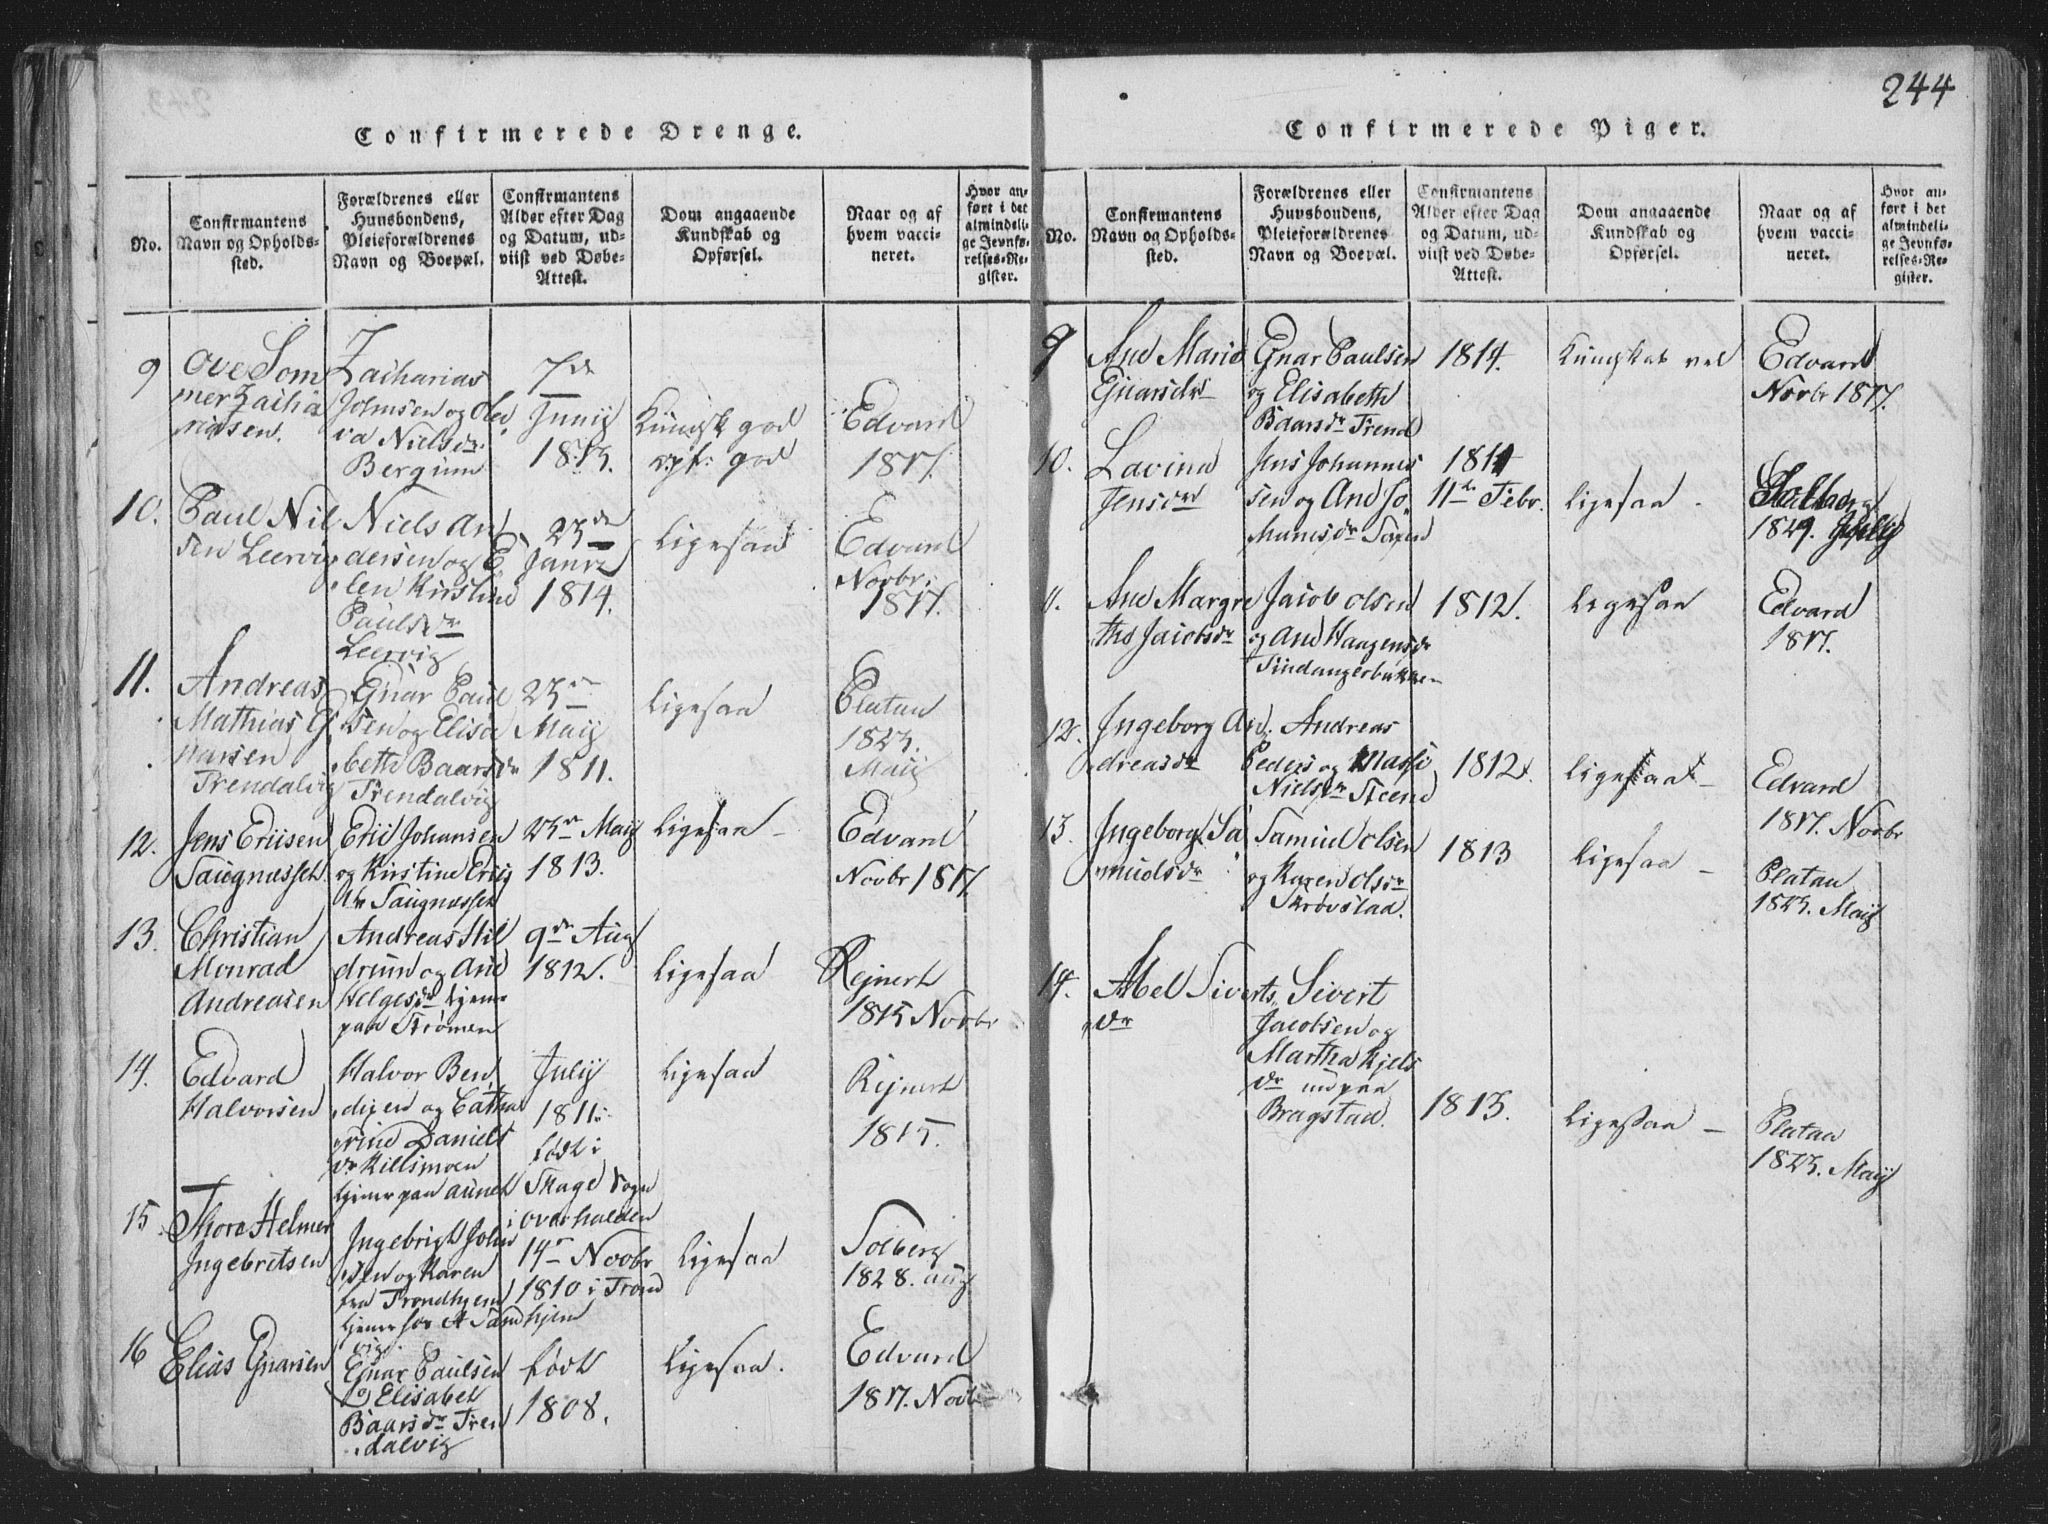 244
Confirmerede Drenge.
No.
Confirmantens
Navn og Opholds-
sted.
Forældrenes eller
Husbondens,
Pleieforældrenes
Navn og Boepæl.
Confirmantens
Alder efter Dag
og Datum, ud-
viist ved Døbe-
Attest.
Dom angaaende
Kundskab og
Opførsel.
Naar og af
hvem vacci-
neret.
Hvor an-
ført i det
almindeli-
ge Jevnfø-
relses-Re-
gister.
9
Ove Som
mer Zacha
riasen.
Zacharias
Johnsen og Ole
va Nielsdr
Bergum
7de
Junij
1815.
Kundsk god
opf: god
Edvard
1817.
10.
Paul Nil
sen Leervig
Niels An
dersen og E
len Kirstine
Paulsdr
Leervig
23de
Janr
1814.
Ligesaa
Edvard
Novbr.
1817.
11.
Andreas
Mathias G
narsen
Trendalvig
Gnar Paul
sen og Elisa
beth Baarsdr
Trendalvig
Maij
1811.
Ligesaa
Platau
1823.
Maij
12.
Jens Ericsen
Saugnæsset.
Eric Johansen
og Kirstine Erics
dr Saugnæsset
Maij
1813.
Ligesaa
Edvard
Novbr 1817.
13.
Christian
Monrad
Andreasen
Andreas Hil
drum og Ane
Helgesdr hjem
paa Strømen
9de Aug
1812.
Ligesaa
Rejnert
1815 Novbr
14.
Edvard
Halvorsen
Halvor Ben
digen og Catha
rine Daniels
dr Killsmoen
tjener paa Aunet
July
1811.
født i
Skage Sogn
i Overhalden
Ligesaa
Rejnert
1815.
15
Thore Helmer
Ingebretsen
Ingebrigt John
sen og Karen
fra Trondhjem
tjener hos A Sand
vig.
14de Novbr
1810 i Trond
hjem
Ligesaa
Solberg
1828. Aug
16
Elias Gnarsen
Gnar Paulsen
og Elisabet
Baarsdr Tren
dalvig
født
1808.
Ligesaa.
Edvard
1817. Novbr
Confirmerede Piger.
No.
Confirmantens
Navn og Opholds-
sted.
Forældrenes eller
Huusbondens,
Pleieforældrenes
Navn og Boepæl.
Confirmantens
Alder efter Dag
og Datum, ud-
viist ved Døbe-
Attest.
Dom angaaende
Kundskab og
Opførsel.
Naar og af
hvem vacci-
neret.
Hvor an-
ført i det
almindeli-
ge Jevnfø-
relses-Re-
gister.
9
Ane Marie
Gnarsdr
Gnar Paulsen
og Elisabeth
Baarsdr Trend
1814.
Kundskab vel
Edvard
Novbr 1817.
10.
Lavina
Jensdr
Jens Johannes
sen og Ane Jo
1814
11te Febr.
Ligesaa
1829.
11.
Ane Margre
the Jacobsdr
Jacob Olsen
og Ane Haagensdr
Sindangerbakken
1812.
Ligesaa
Edvard
1817.
12.
Ingeborg An
dreasdr
Andreas
Peders og Massi
Nielsdr Steen
1812.
Ligesaa
Edvard
1817. Novbr
13.
Ingeborg Sa
muelsdr
Samuel Olsen
og Karen Olsdr
Skrøvstad.
1813
Ligesaa
Platau
1823. Maij
14.
Abel Siverts
dr
Sivert
Jacobsen og
Martha Kjels
dr
Bragstad.
1813.
Ligesaa
Platau
1823. Maij